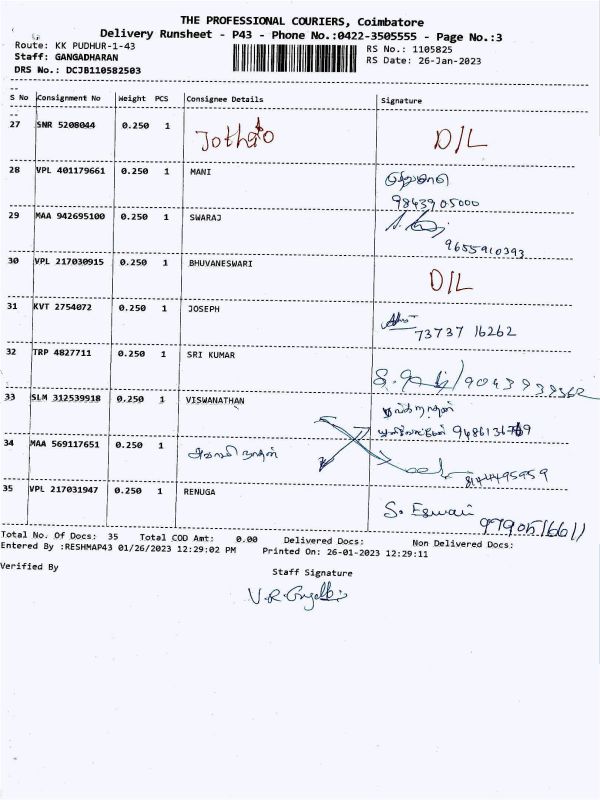 THE PROFESSIONAL COURIERS, Coimbatore
Delivery Runsheet - P43 - Phone No.:0422-3505555 - Page No.:3
Route: KK PUDHUR-1-43 RS No.: 1105825
Staff: GANGADHARAN RS Date: 26-Jan-2023
DRS No.: DCJB110582503
S No Consignment No Weight PCS Consignee Details Signature
27 SNR 5208044 0.250 1 D/L
28 VPL 401179661 0.250 1 MANI
9843905000
29 MAA 942695100 0.250 1 SWARAJ
9655910393
30 VPL 217030915 0.250 1 BHUVANESWARI D/L
31 KVT 2754072 0.250 1 JOSEPH
73737 16262
32 TRP 4827711 0.250 1 SRI KUMAR
33 SLM 312539918 0.250 1 VISWANATHAN
34 MAA 569117651 0.250 1
35 VPL 217031947 0.250 1 RENUGA S. Eswari
9790516611
Total No. Of Docs: 35 Total COD Amt: 0.00 Delivered Docs: Non Delivered Docs:
Entered By :RESHMAP43 01/26/2023 12:29:02 PM Printed On: 26-01-2023 12:29:11
Verified By Staff Signature